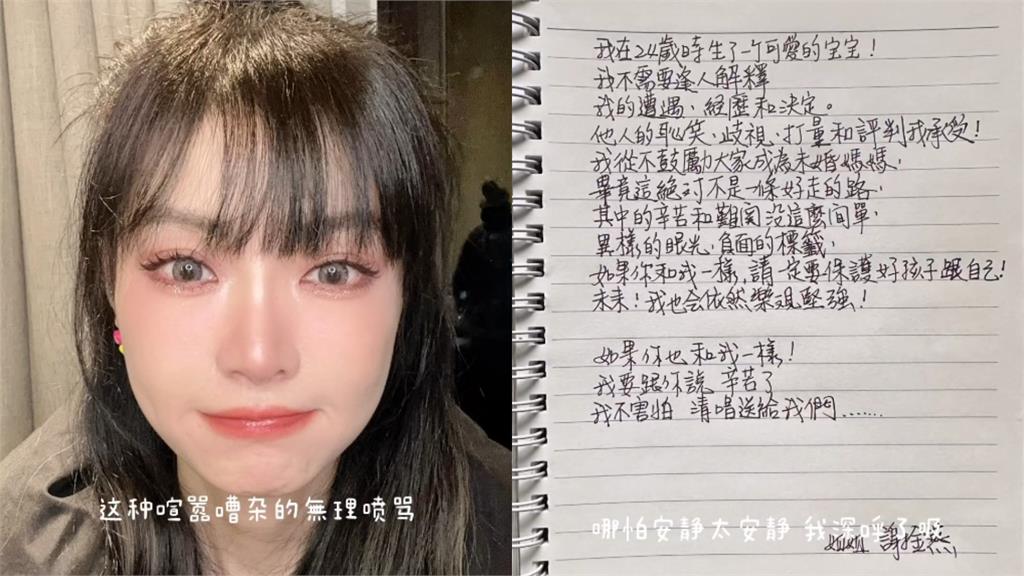 这种喧嚣嘈杂的無理喷骂
我在24歲時生了一个可愛的宝宝！
我不需要逢人解釋
我的遭遇、經歷和決定。
他人的恥笑、歧視、打量和評判我承受！
我從不鼓勵大家成為未婚媽媽，
畢竟這絕对不是一條好走的路，
其中的辛苦和難関没這麼简單，
異樣的眼光、負面的標籤，
如果你和我一樣，請一定要保護好孩子跟自己！
未来！我也会依然樂观堅强！
如果你也和我一樣！
我要跟你說 辛苦了
我不害怕 清唱送給我們……
哪怕安靜太安靜 我深呼了
謝金燕